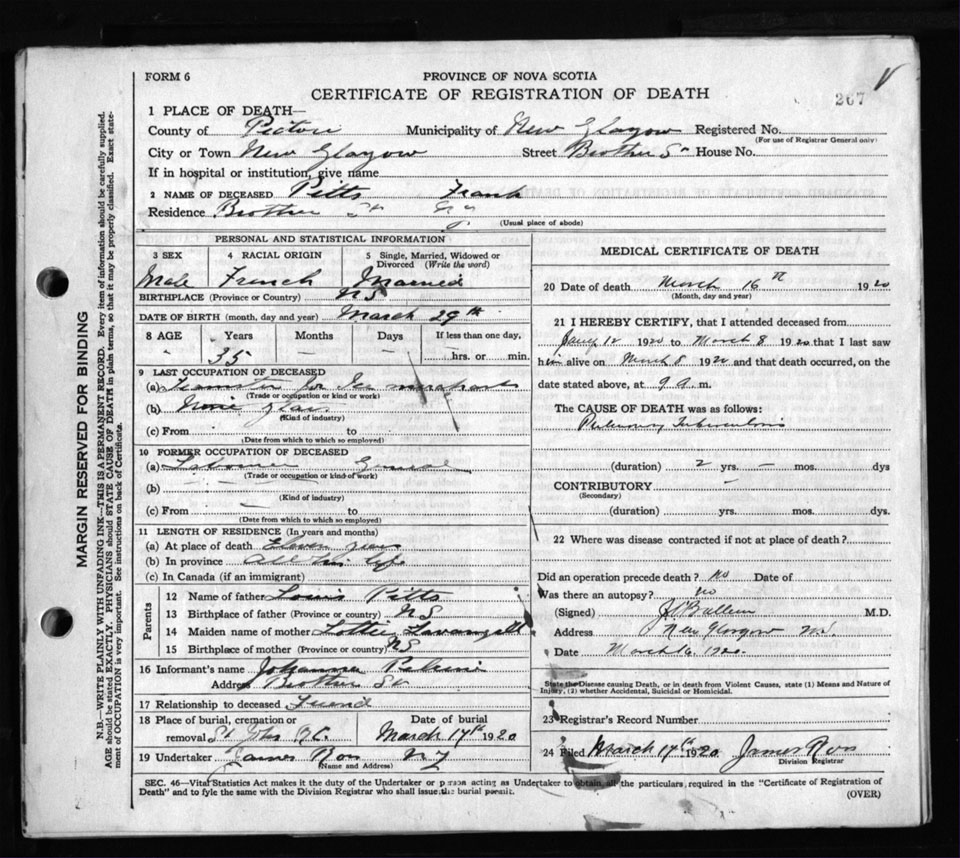 FORM 6
PROVINCE OF NOVA SCOTIA
CERTIFICATE OF REGISTRATION OF DEATH
267
1 PLACE OF DEATH—
County of Pictou Municipality of New Glasgow Registered No.
(For use of Registrar General only)
City or Town New Glasgow Street Brother St House No.
If in hospital or institution, give name
2 NAME OF DECEASED Pitts Frank
Residence Brother St
(Usual place of abode)
PERSONAL AND STATISTICAL INFORMATION
3 SEX 4 RACIAL ORIGIN 5 Single, Married, Widowed or Divorced (Write the word)
Male French Married
BIRTHPLACE (Province or Country) NS
DATE OF BIRTH (month, day and year) March 29th
8 AGE Years Months Days If less than one day,
– 35 – – hrs. or min.
9 LAST OCCUPATION OF DECEASED
(a) Teamster for Ice merchants
(Trade or occupation or kind or work)
(b)
(Kind of industry)
(c) From to
(Date from which to which so employed)
10 FORMER OCCUPATION OF DECEASED
(a) Labourer General
(Trade or occupation or kind of work)
(b) — —
(Kind of industry)
(c) From to
(Date from which to which so employed)
11 LENGTH OF RESIDENCE (In years and months)
(a) At place of death Eleven years
(b) In province All his life
(c) In Canada (if an immigrant)
Parents
12 Name of father Louis Pitts
13 Birthplace of father (Province or country) NS
14 Maiden name of mother Lottie
15 Birthplace of mother (Province or country) NS
16 Informant's name Johanna
Address Brother St
17 Relationship to deceased Friend
18 Place of burial, cremation or removal St Johns Date of burial March 17th 1920
19 Undertaker James Ross N.G.
(Name and Address)
MEDICAL CERTIFICATE OF DEATH
20 Date of death March 16th 1920
(Month, day and year)
21 I HEREBY CERTIFY, that I attended deceased from
Jany 12 1920 to March 8 1920 that I last saw
him alive on March 8 1920 and that death occurred, on
date stated above, at 9 a. m.
The CAUSE OF DEATH was as follows:
Pulmonary Tuberculosis
(duration) 2 yrs. – mos. dys
CONTRIBUTORY –
(Secondary)
(duration) yrs. mos. dys.
22 Where was disease contracted if not at place of death?
Did an operation precede death? No Date of
Was there an autopsy? No
(Signed) M.D.
Address New Glasgow N.S.
Date March 16 1920.
State the Disease causing Death, or in death from Violent Causes, state (1) Means and Nature of
Injury, (2) whether Accidental, Suicidal or Homicidal.
23 Registrar's Record Number
24 Filed March 17th 1920 James Ross
Division Registrar
SEC. 46—Vital Statistics Act makes it the duty of the Undertaker or person acting as Undertaker to obtain all the particulars required in the "Certificate of Registration of
Death" and to fyle the same with the Division Registrar who shall issue the burial permit.
(OVER)
MARGIN RESERVED FOR BINDING
N.B.—WRITE PLAINLY WITH UNFADING INK—THIS IS A PERMANENT RECORD. Every item of information should be carefully supplied.
AGE should be stated EXACTLY. PHYSICIANS should STATE CAUSE OF DEATH in plain terms, so that it may be properly classified. Exact state-
ment of OCCUPATION is very important. See instructions on back of Certificate.